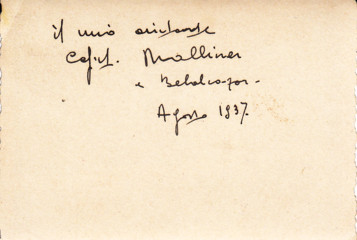 il mio aiutante
Capit. Malliner
a Belalcazar.
Agosto 1937.